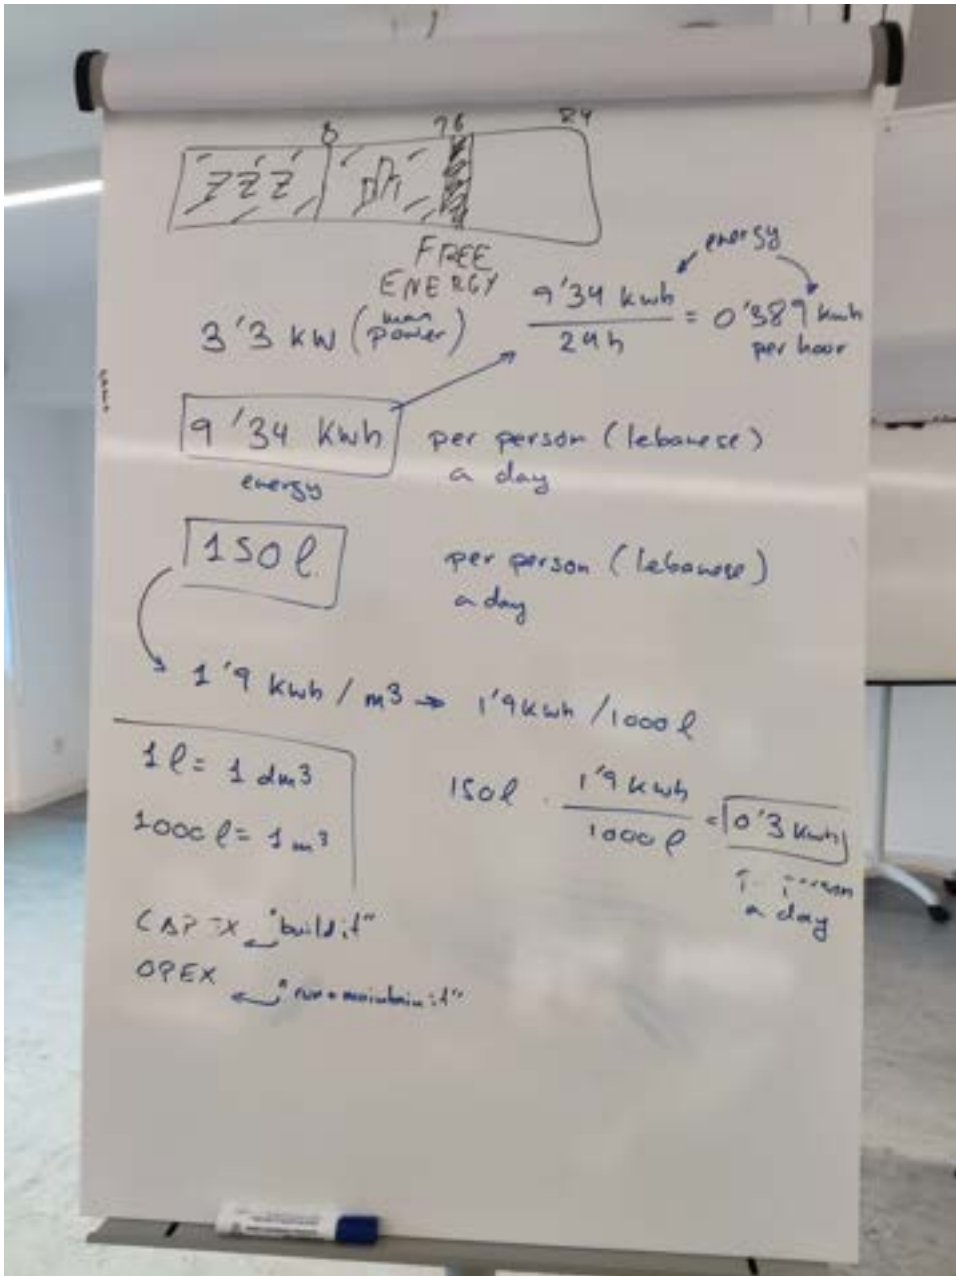 8 16 24
ZZZ
FREE
ENERGY
3'3 kW (man power)
energy
9'34 kwh / 24h = 0'389 kwh per hour
9'34 Kwh per person (lebanese) a day
energy
150 l. per person (lebanese) a day
1'9 kwh / m³ → 1'9 kwh / 1000 l
1 l = 1 dm³
1000 l = 1 m³
150 l · 1'9 kwh / 1000 l = 0'3 kwh
a day
CAPEX "build it"
OPEX "run + maintain it"